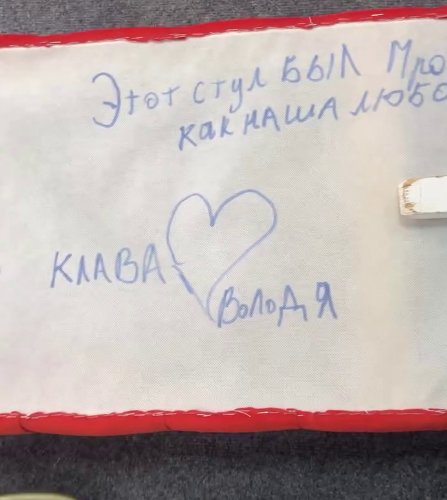 Этот стул БЫЛ
как НАША
КЛАВА
ВолоДЯ